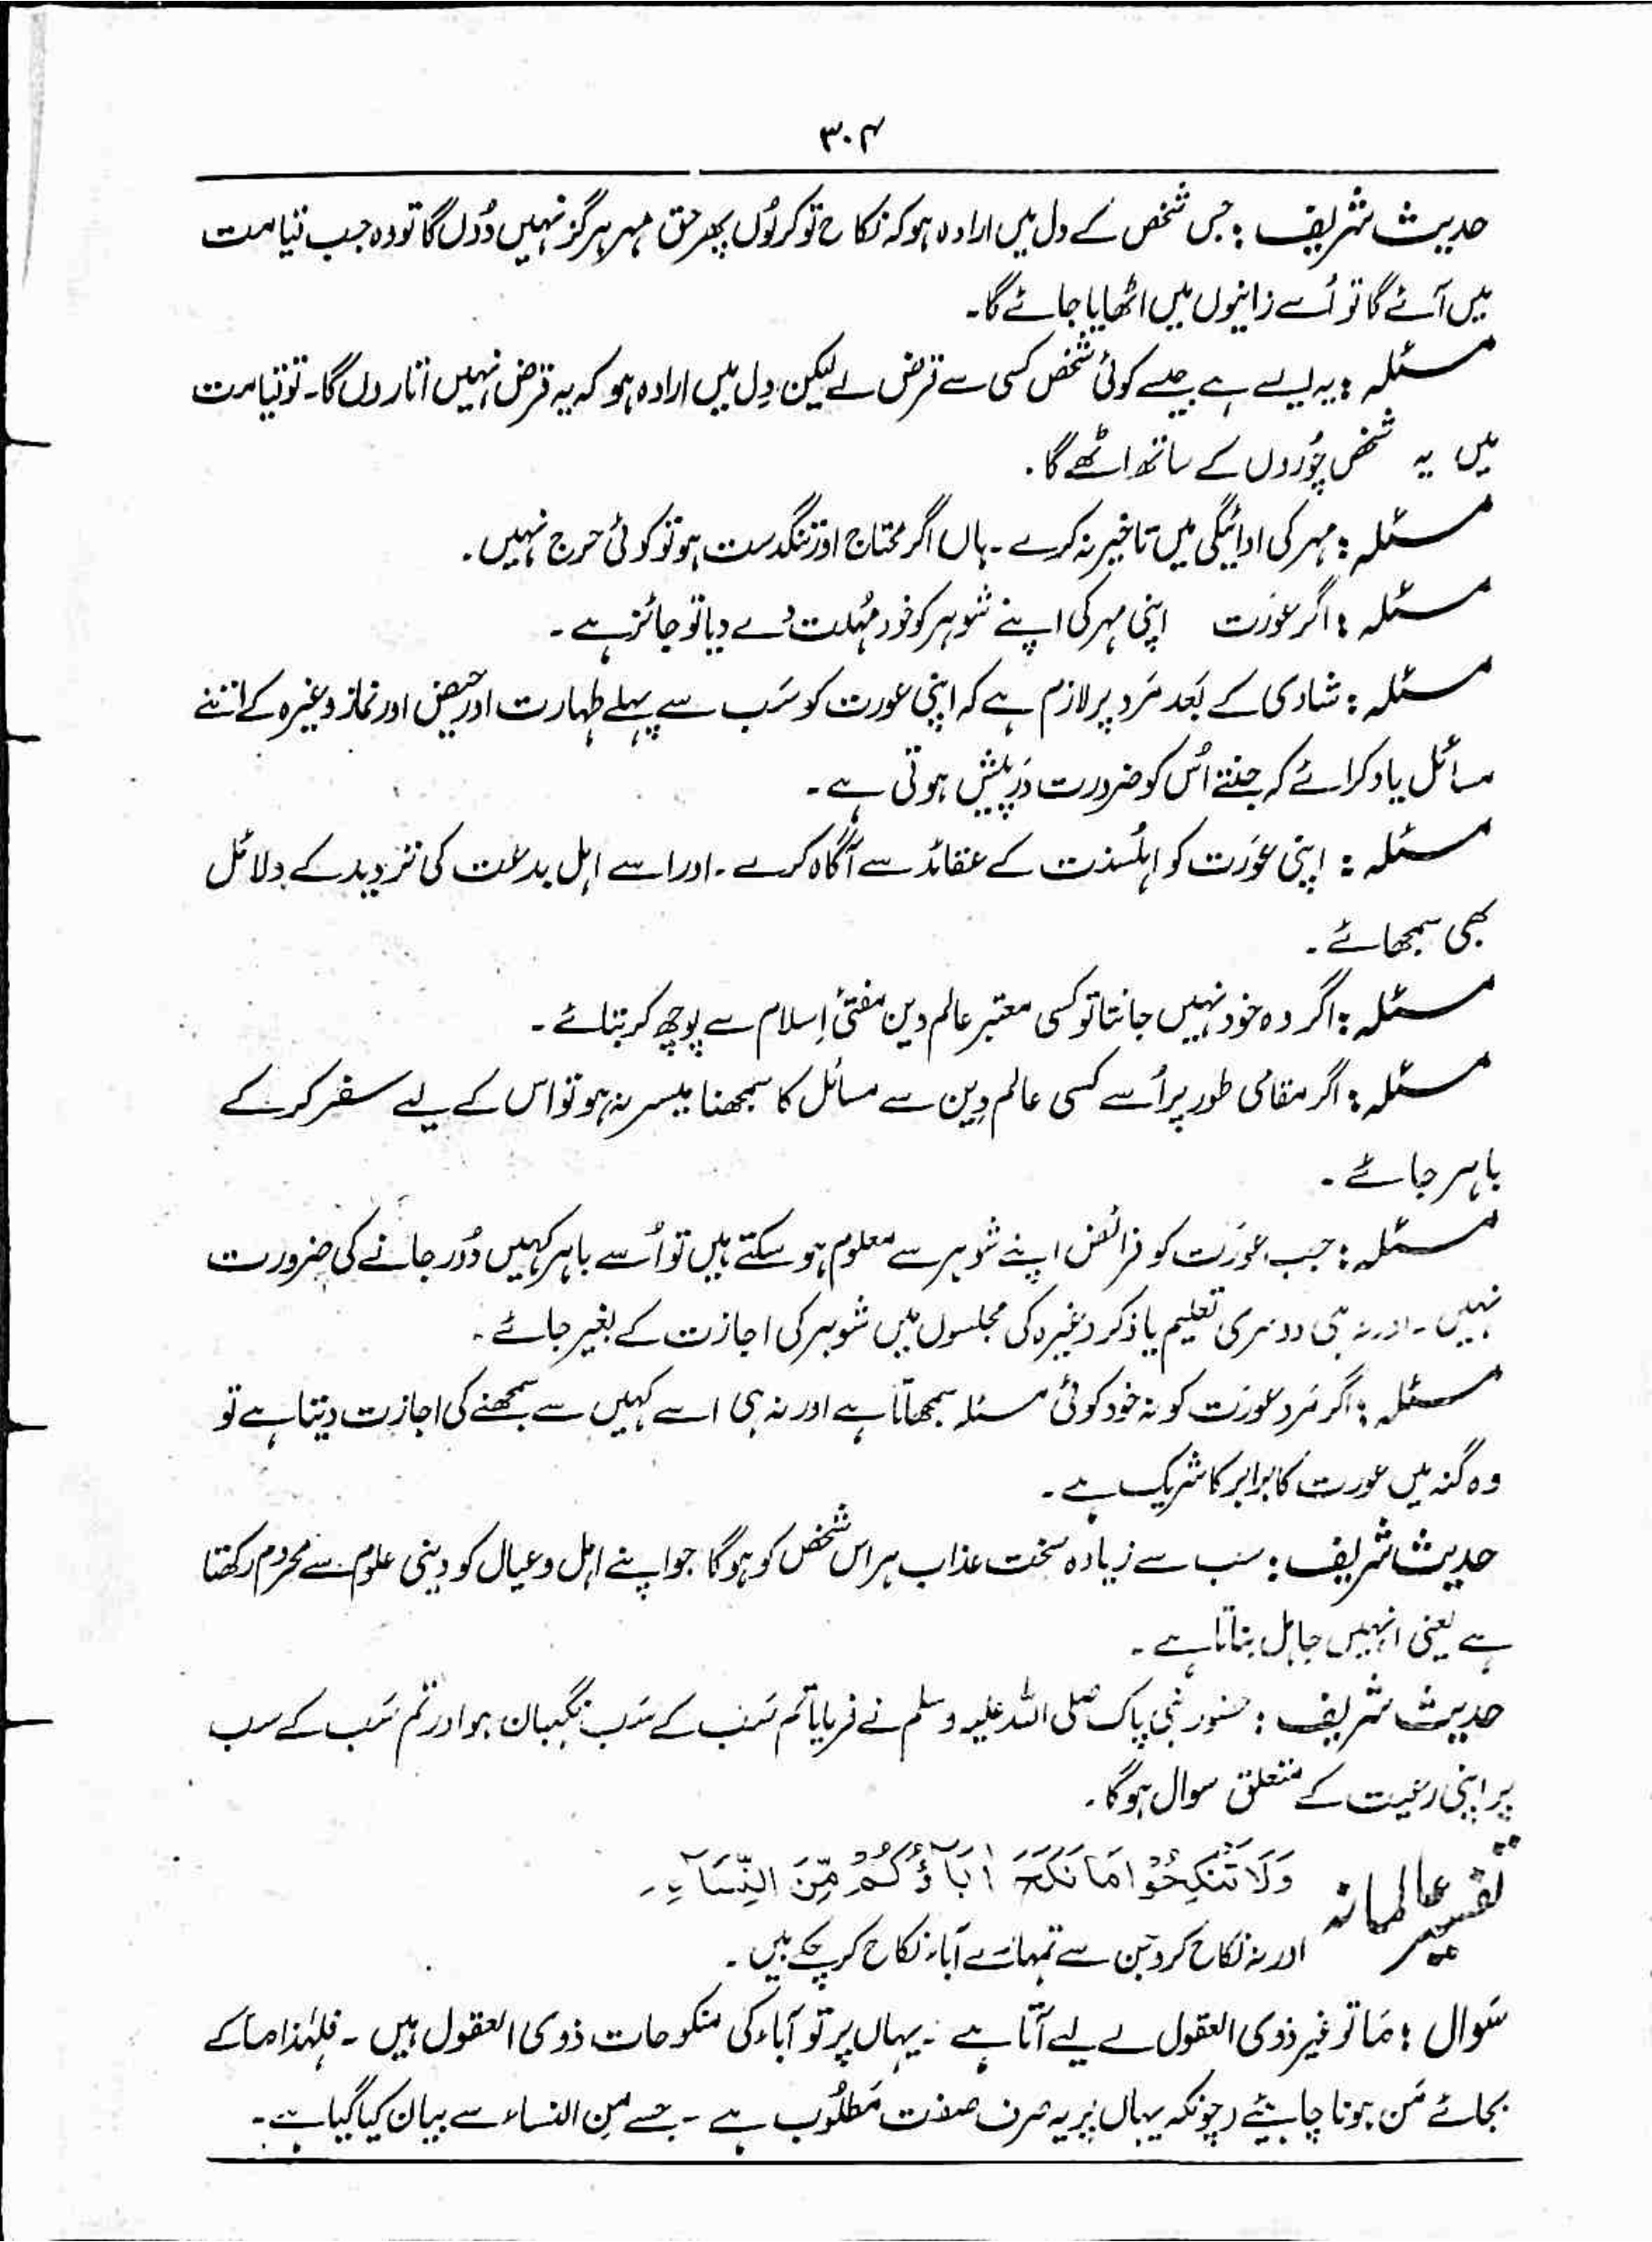 ۳۰۴
حدیث شریف : جس شخص کے دل میں ارادہ ہو کہ نکاح تو کر لوں پھر حق مہر ہرگز نہیں دُوں گا تو وہ جب قیامت
میں آئے گا تو اُسے زانیوں میں اٹھایا جائے گا۔
مسئلہ : یہ ایسے ہے جیسے کوئی شخص کسی سے قرض لے لیکن دِل میں ارادہ ہو کہ یہ قرض نہیں اتاروں گا۔ تو قیامت
میں یہ شخص چوروں کے ساتھ اٹھے گا۔
مسئلہ : مہر کی ادائیگی میں تاخیر نہ کرے ۔ ہاں اگر محتاج اور تنگدست ہو تو کوئی حرج نہیں۔
مسئلہ : اگر عورت اپنی مہر کی اپنے شوہر کو خود مُہلت دے دیا تو جائز ہے ۔
مسئلہ : شادی کے بَعد مَرد پر لازم ہے کہ اپنی عورت کو سَب سے پہلے طہارت اور حیض اور نماز وغیرہ کے اتنے
مسائل یاد کرائے کہ جتنے اُس کو ضرورت دَرپیش ہوتی ہے ۔
مسئلہ : اپنی عوَرت کو اہلُسنت کے عقائد سے آگاہ کرے ۔ اور اسے اہل بدعت کی تردید کے دلائل
بھی سمجھائے ۔
مسئلہ : اگر وہ خود نہیں جانتا تو کسی معتبر عالم دین مفتیٔ اِسلام سے پوچھ کر بتائے ۔
مسئلہ : اگر مقامی طور پر اُسے کسی عالم دِین سے مسائل کا سمجھنا میسر نہ ہو تو اس کے لیے سفر کر کے
باہر جائے ۔
مسئلہ : جب عورَت کو فرائض اپنے شوہر سے معلوم ہو سکتے ہیں تو اُسے باہر کہیں دُور جانے کی ضرورت
نہیں ۔ اور نہ ہی دوسری تعلیم یا ذکر وغیرہ کی مجلسوں میں شوہر کی اجازت کے بغیر جائے ۔
مسئلہ : اگر مَرد عورَت کو نہ خود کوئی مسئلہ سمجھاتا ہے اور نہ ہی اسے کہیں سے سمجھنے کی اجازت دیتا ہے تو
وہ گنہ میں عورت کا برابر کا شریک ہے ۔
حدیث شریف : سب سے زیادہ سخت عذاب ہر اس شخص کو ہو گا جو اپنے اہل و عیال کو دینی علوم سے محروم رکھتا
ہے یعنی انہیں جاہل بناتا ہے ۔
حدیث شریف : حضور نبی پاک صلی اللہ علیہ وسلم نے فرمایا تم سَب کے سَب نگہبان ہو اور تم سَب کے سب
پر اپنی رعیت کے متعلق سوال ہو گا ۔
تفسیر عالمانہ وَلَا تَنْكِحُوْا مَا نَكَحَ اٰبَآؤُكُمْ مِّنَ النِّسَآءِ ۔
اور نہ نکاح کرو جن سے تمہارے آباء نکاح کر چکے ہیں ۔
سَوال : مَا تو غیر ذوی العقول کے لیے آتا ہے ۔ یہاں پر تو آباء کی منکوحات ذوی العقول ہیں ۔ فلہٰذا ما کے
بجائے مَن ہونا چاہیئے رچونکہ یہاں پر یہ صرف صفت مَطلُوب ہے ۔ جسے مِن النساء سے بیان کیا گیا ہے ۔